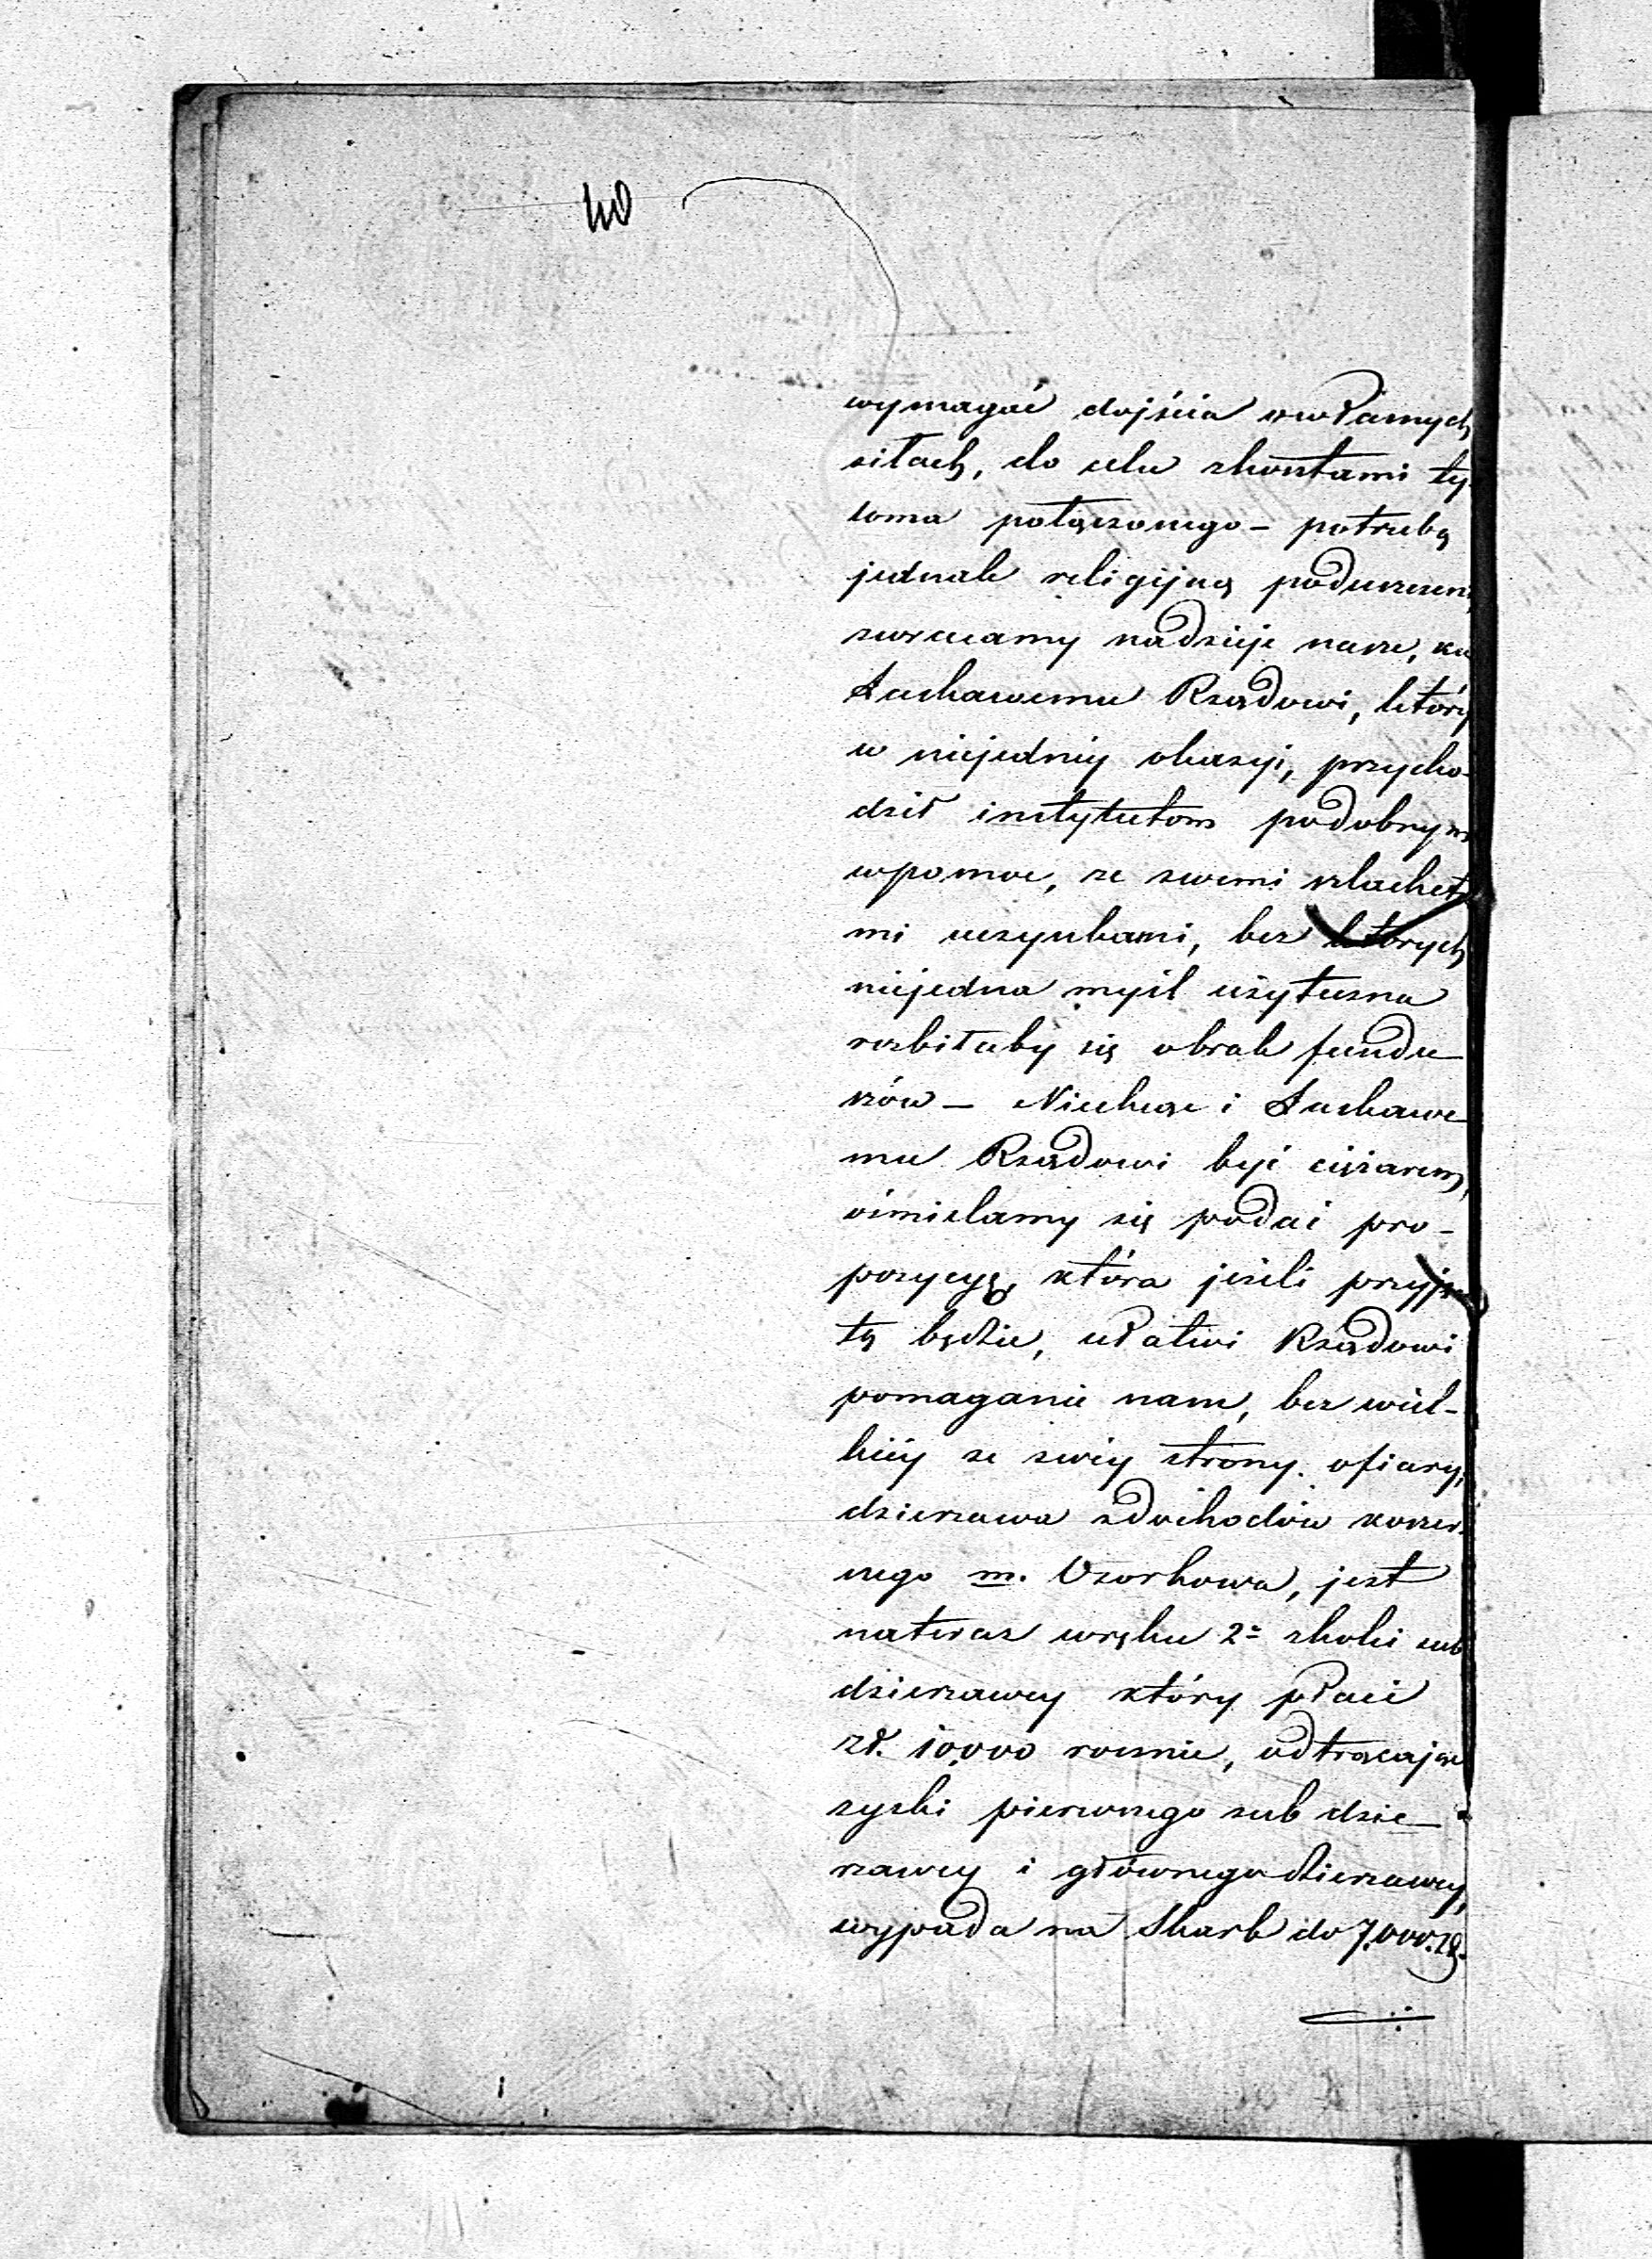 40
wymagać dojścia w własnych
siłach, do celu z kosztami ty
loma połączonego – potrzebą
jednak religijną poduszczeni
zwracamy nadzieje nasze, ku
Łaskawemu Rządowi, który
w niejednéy okazyi, przycho-
dził instytutom podobnym
w pomoc, ze swemi szlachet
mi uczynkami, bez których
niejedna myśl użyteczna
rozbiłaby się o brak fundu
szów – Niechcąc i Łaskawe
mu Rządowi być ciężarem,
ośmielamy się podać pro-
pozycyę, która jeżeli przyję
tą będzie, ułatwi Rządowi
pomaganie nam, bez wiel-
kiéy ze swéy strony ofiary,
dzierzawa z dochodów koszer
nego m. Ozorkowa, jest
na teraz w ręku 2º z kolei sub
dzierzawcy który płaci
zł. 10,000 rocznie, odtrącając
zyski pierwszego sub dzie
rzawcy i głównego dzierzawcy,
wypada na Skarb do 7,000. zł.